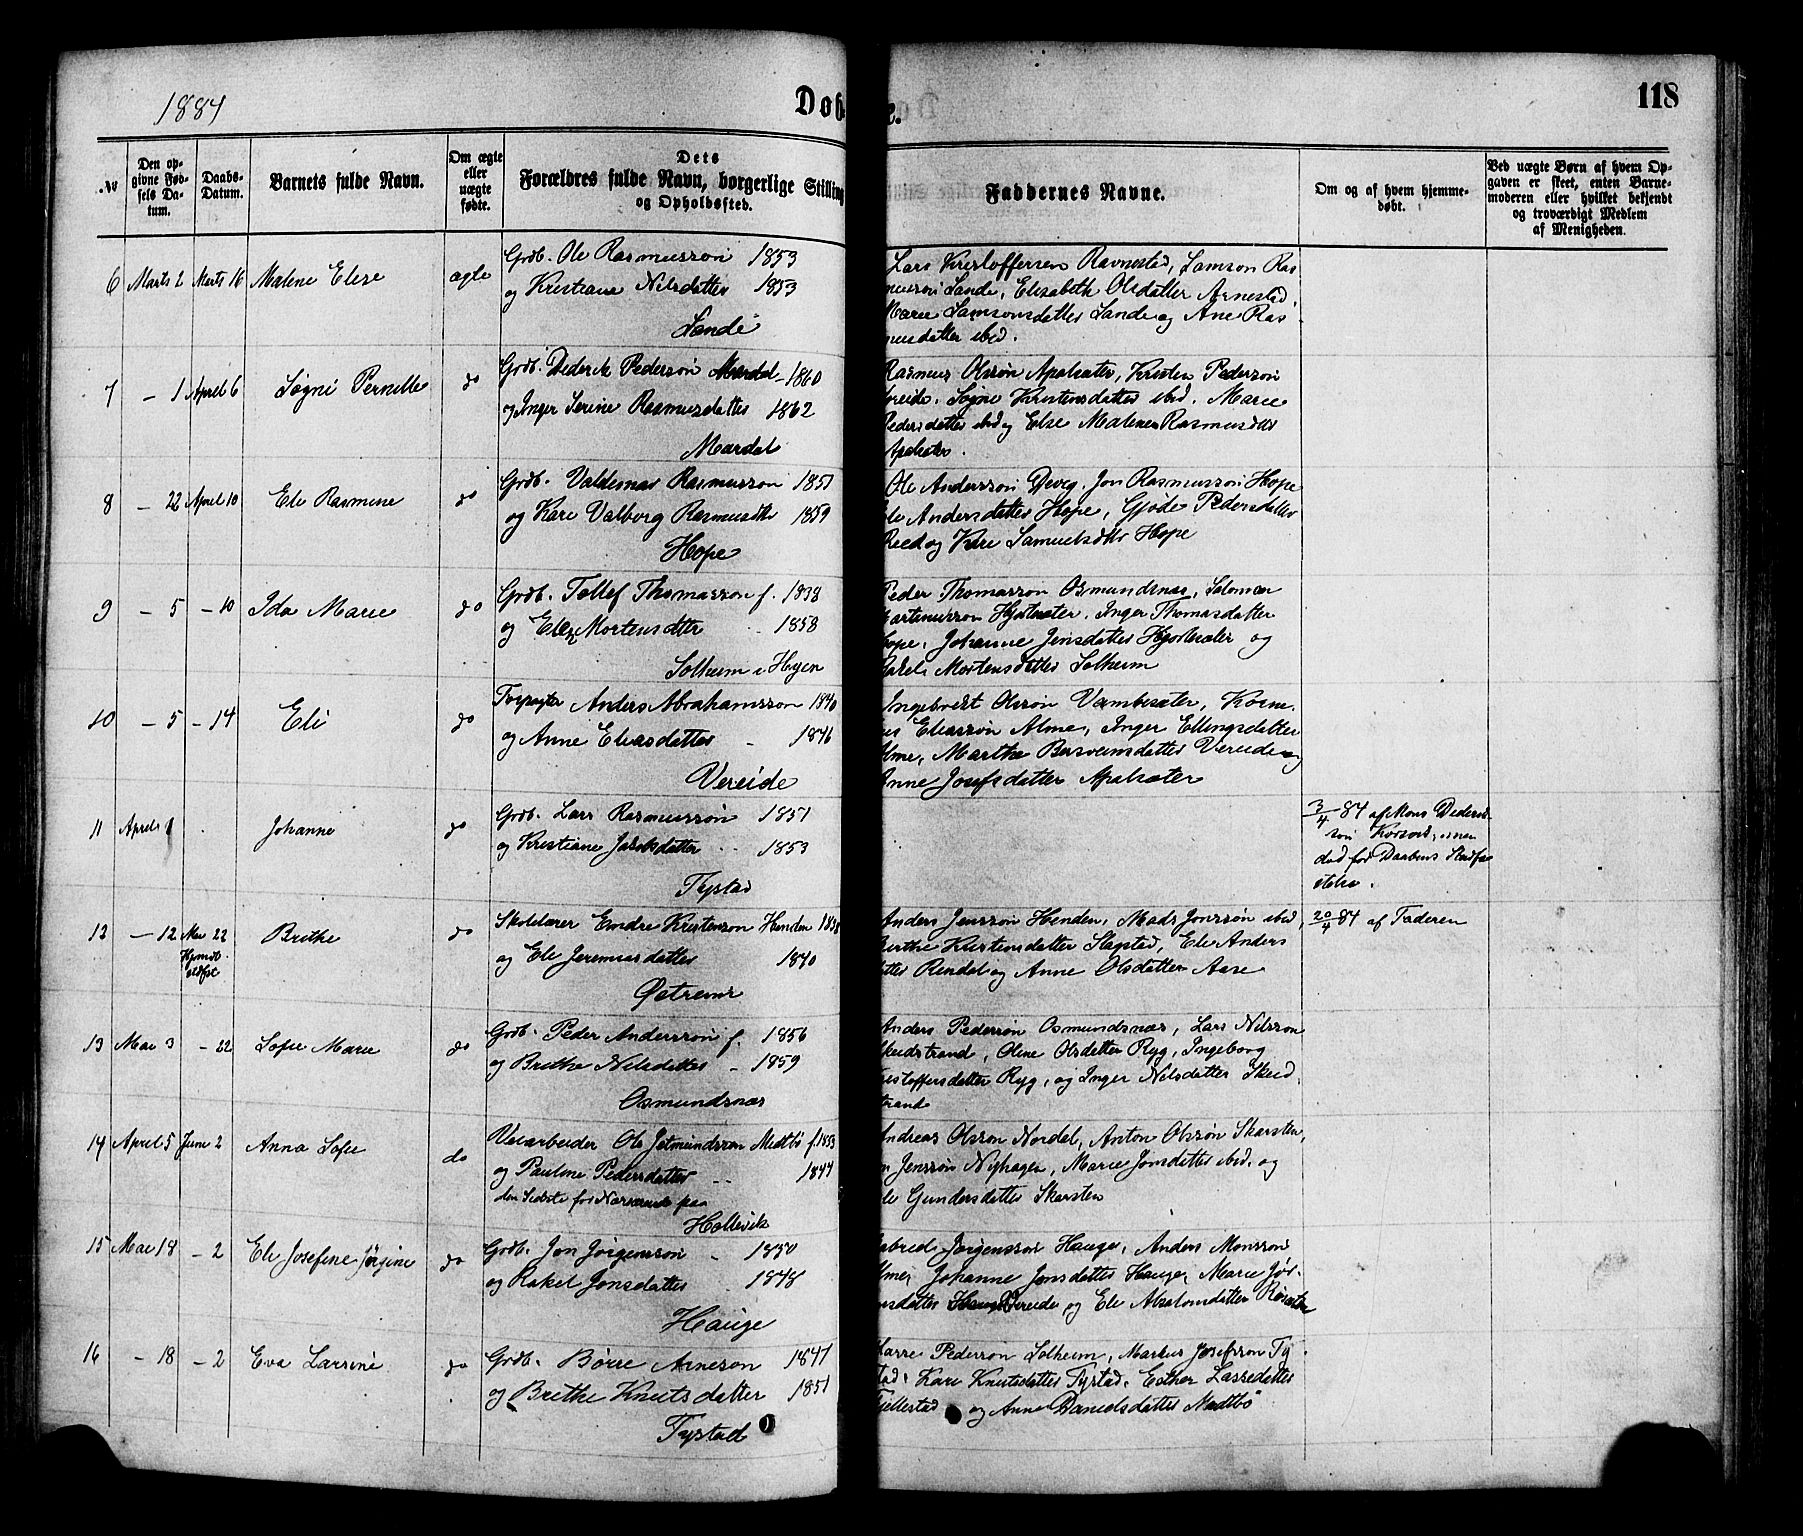 1884
Døb
e.
118
No
Den op-
givne Fød-
sels Da-
tum.
Daabs-
Datum.
Barnets fulde Navn.
Om ægte
eller
uægte
fødte.
Dets
Forældres fulde Navn, borgerlige Stilling
og Opholdssted.
Faddernes Navne.
Om og af hvem hjemme-
døbt.
Ved uægte Børn af hvem Op-
gaven er skeet, enten Barne-
moderen eller hvilket bekjendt
og troværdigt Medlem
af Menigheden.
6 Marts 2 Marts 16 Malene Elise ægte
Grdb. Ole Rasmusson 1853
og Kristiane Nilsdatter 1853
Sande
Lars Kristoffersen Ravnestad, Samson Ras
musson Sande, Elisabeth Olsdatter Arnestad,
Marie Samsonsdatter Sande og Ane Ras
musdatter ibid.
7 — 1 April 6 Søgni Pernille do
Grdb. Dederik Pederson Mardal 1860
og Inger Serine Rasmusdatter 1862
Mardal
Rasmus Olsson Apalsæter, Kristen Pederson
Vereide, Søgne Kristensdatter ibid. Marie
Pedersdatter ibid og Else Malene Rasmusdttr
Apalsæter.
8 — 22 April 10 Eli Rasmine do
Grdb. Valdemar Rasmusson 1851
og Kari Valborg Rasmusdtr 1859
Hope
Ole Andersson Gjveg, Jon Rasmusson Hope
Andersdatter Hope, Gjøde Pedersdatter
Reed og Kari Samuelsdttr Hope
9 — 5 — 10 Ida Marie do
Grdb. Tollef Thomasson f. 1838
og Elen Mortensdttr 1858
Solheim i Hyen
Peder Thomasson Osmundsnæs, Salomon
Martinusson Hjortesæter, Inger Thomasdatter
Hope, Johanne Jensdatter Hjortesæter og
Rakel Mortensdatter Solheim
10 — 5 — 14 Eli do
Forpagter Anders Abrahamsson 1840
og Anne Eliasdatter 1846
Vereide
Ingebrect Olsson Vambesæter, Korne-
lius Eliasson Alme, Inger Ellingsdatter
Alme, Marthe Bersveinsdatter Vereide og
Anne Josefsdatter Apalsæter
11 April 1 Johanne do
Grdb. Lars Rasmusson 1851
og Kristiane Jakobsdatter 1853
Tystad
3/4 84 af Mons Dideriks
son men
død før Daabens Stadfæ
stelse.
12 — 12 Mai 22 Brithe do
Hjemdb.
stdfst
Skolelærer Endre Kristenson Henden 1838
og Eli Jeremiasdatter 1840
Østrem
Anders Jensson Henden, Mads Jonsson ibid,
Berthe Kristensdatter Slagstad, Eli Anders
datter Rendal og Anne Olsdatter Aase
20/4 84 af Faderen
13 Mai 3 — 22 Sofie Marie do
Grdb. Peder Andersson f. 1856
og Brithe Nilsdatter 1859
Osmundsnæs
Anders Pederson Osmundsnæs, Lars Nilsson
Skeidstrand, Oline Olsdatter Ryg, Ingeborg
Kristoffersdatter Ryg, og Inger Nilsdatter Skeid
strand
14 April 5 Juni 2 Anna Sofie do
Veiarbeider Ole Jetmundsson Medtbø f. 1853
og Pauline Pedersdatter 1847
den Sidste for Nærværende paa
Hollevik
Andreas Olsson Nordal, Anton Olsson Skarsten,
Jensson Nyhagen, Marie Jonsdatter ibid, og
Gundersdatter Skarsten
15 Mai 18 — 2 Eli Josefine Jørgine do
Grdb. Jon Jørgensson 1850
og Rakel Jonsdatter 1848
Hauge
Gabriel Jørgensson Hauge, Anders Monsson
Alme, Johanne Jonsdatter Hauge, Marie Jør-
gensdatter Hauge Vereide, og Eli Absalonsdatter
16 — 18 — 2 Eva Larsine do
Grdb. Børre Arneson 1847
og Brithe Knutsdatter 1851
Tystad
Pederson Solheim, Markus Josefsson Ty-
stad, Kari Knutsdatter Tystad, Esther Lassedatter
Fjellestad og Anne Danielsdatter Medtbø